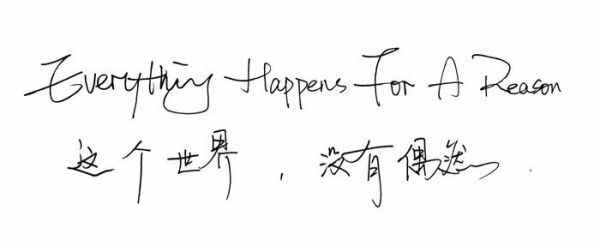 Everything Happens For A Reason
这个世界，没有偶然.